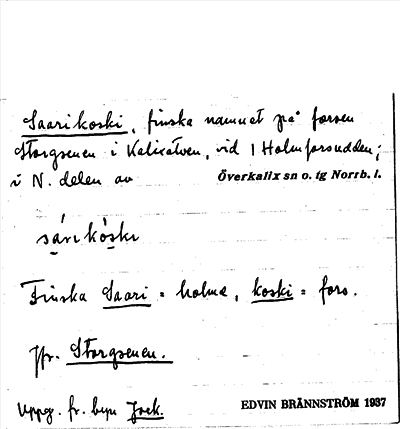 Saarikoski, finska namnet på forsen
Storgsenen i Kalixälven, vid 1 Holmforsudden;
i N. delen av Överkalix sn o. tg Norrb. l.
sárikòski
Finska Saari = holme, koski = fors.
Jfr. Storgsenen.
Uppg. fr. byn Jock.
EDVIN BRÄNNSTRÖM 1937